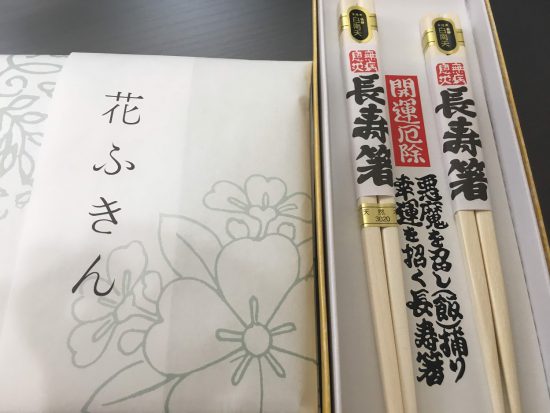 花ふきん
白南天
無病
息災
長寿箸
開運厄除
悪魔を召し(飯)捕り
幸運を招く長寿箸
天然
白南天
無病
息災
長寿箸